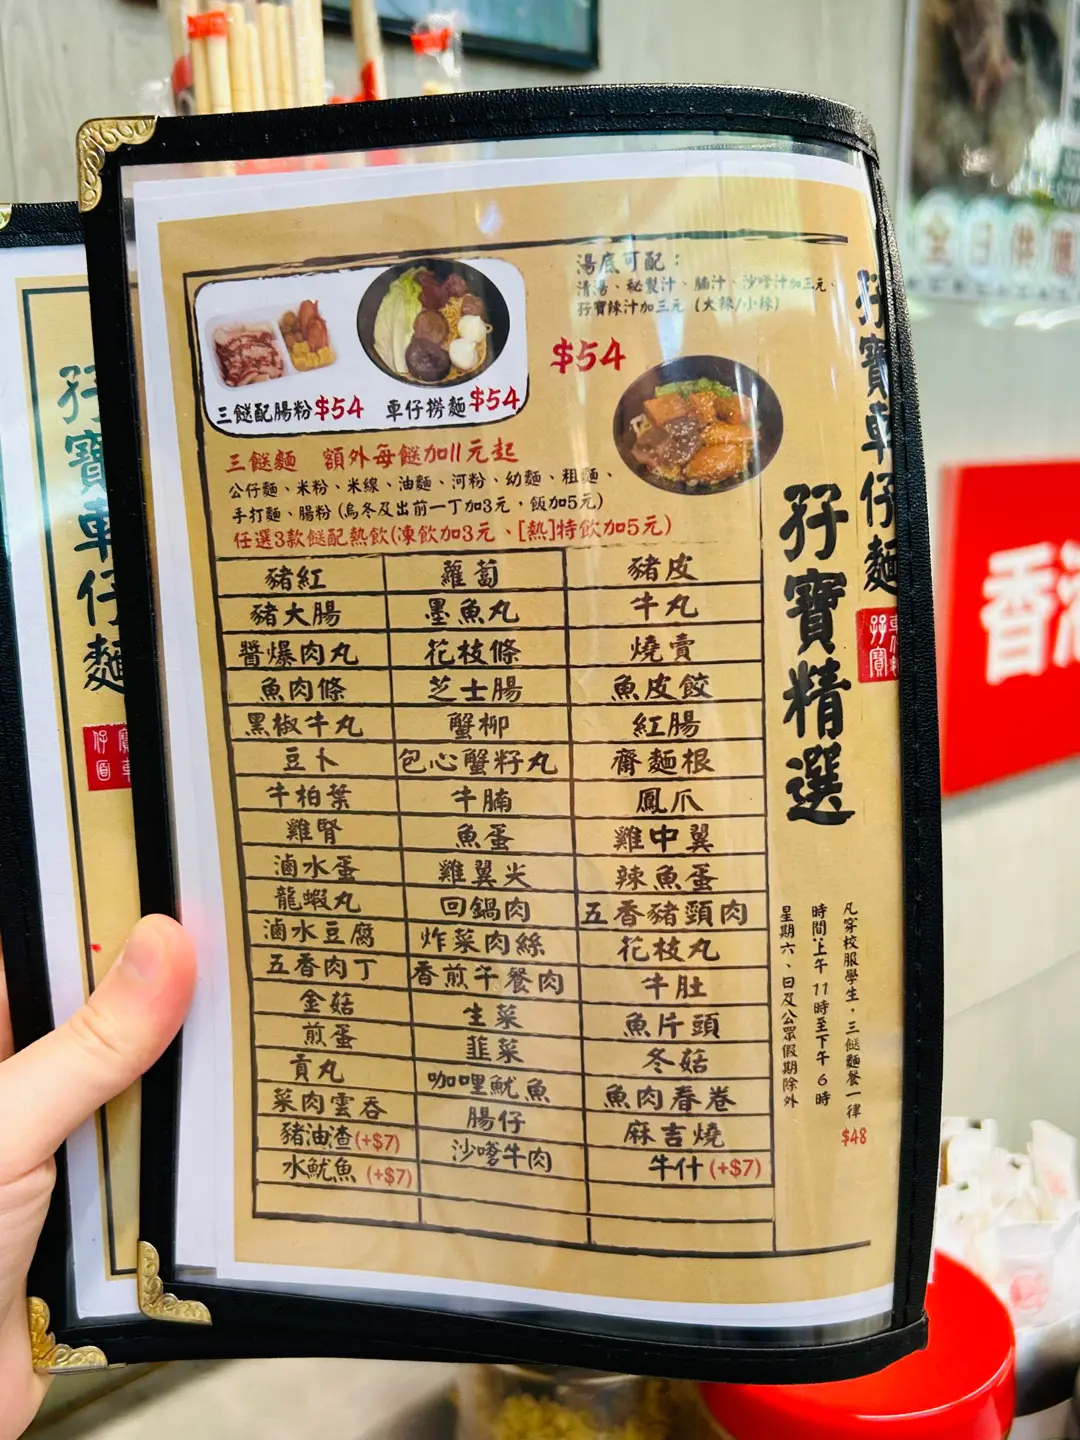 湯底可配：
清湯、秘製汁、腩汁、沙嗲汁加三元、
孖寶辣汁加三元 (大辣/小辣)
$54
三餸配腸粉$54 車仔撈麵$54
三餸麵 額外每餸加11元起
公仔麵、米粉、米線、油麵、河粉、幼麵、粗麵、
手打麵、腸粉 (烏冬及出前一丁加3元，飯加5元)
任選3款餸配熱飲(凍飲加3元、[熱]特飲加5元)
豬紅 蘿蔔 豬皮
豬大腸 墨魚丸 牛丸
醬爆肉丸 花枝條 燒賣
魚肉條 芝士腸 魚皮餃
黑椒牛丸 蟹柳 紅腸
豆卜 包心蟹籽丸 齋麵根
牛柏葉 牛腩 鳳爪
雞腎 魚蛋 雞中翼
滷水蛋 雞翼尖 辣魚蛋
龍蝦丸 回鍋肉 五香豬頸肉
滷水豆腐 炸菜肉絲 花枝丸
五香肉丁 香煎午餐肉 牛肚
金菇 生菜 魚片頭
煎蛋 韮菜 冬菇
貢丸 咖哩魷魚 魚肉春卷
菜肉雲吞 腸仔 麻吉燒
豬油渣(+$7) 沙嗲牛肉 牛什(+$7)
水魷魚 (+$7)
孖寶車仔麵
孖寶精選
凡穿校服學生，三餸麵餐一律
$48
時間：上午11時至下午6時
星期六、日及公眾假期除外
孖寶車仔麵
香港